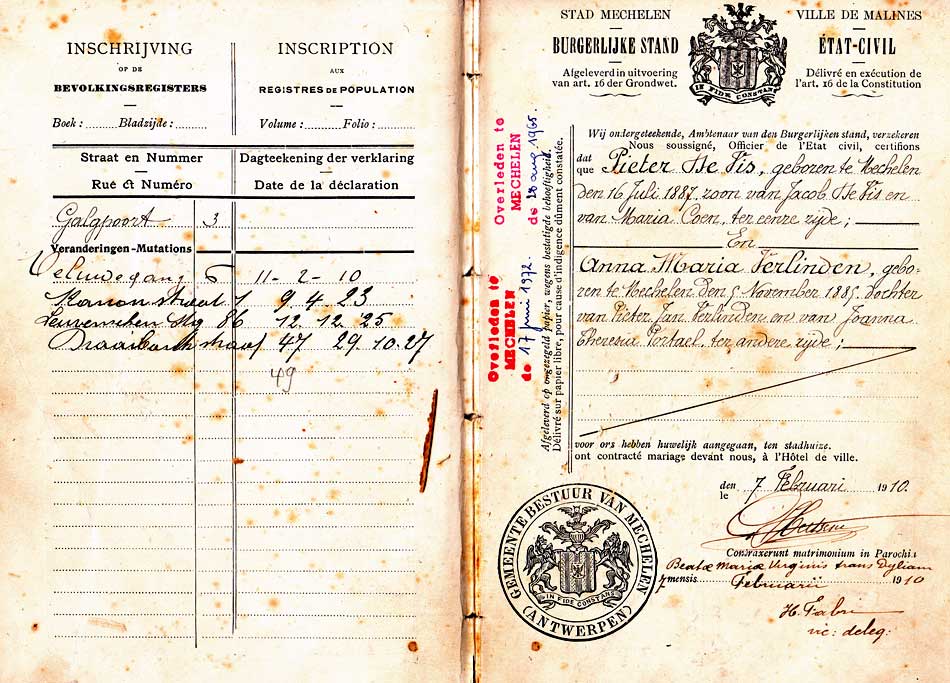 INSCHRIJVING
OP DE
BEVOLKINGSREGISTERS
Boek: ........ Bladzijde: ........
INSCRIPTION
AUX
REGISTRES DE POPULATION
Volume: .......... Folio: ........
Straat en Nummer
Rue et Numéro
Dagteekening der verklaring
Date de la déclaration
Galgpoort 3
Veranderingen-Mutations
6 11 - 2 - 10
straat 1 9. 4. 23
Leuvenschen Stg 86 12. 12. 25
straat 47 29. 10. 27
49
Overleden te
MECHELEN
de 28 aug 1965.
Overleden te
MECHELEN
de 17 juni 1972.
Afgeleverd op ongezegeld papier, wegens bestatigde behoeftigheid.
Délivré sur papier libre, pour cause d'indigence dûment constatée.
STAD MECHELEN
BURGERLIJKE STAND
Afgeleverd in uitvoering
van art. 16 der Grondwet.
IN FIDE CONSTANS
VILLE DE MALINES
ÉTAT-CIVIL
Délivré en exécution de
l'art. 16 de la Constitution
Wij ondergeteekende, Ambtenaar van den Burgerlijken stand, verzekeren
Nous soussigné, Officier de l'Etat civil, certifions
dat
que Pieter De Vis, geboren te Mechelen
den 16 Juli 1887, zoon van Jacob De Vis en
van Maria Coen, ter eenre zijde;
En
Anna Maria Verlinden, gebo-
ren te Mechelen den 5 November 1885, dochter
van Pieter Jan Verlinden en van Joanna
Theresia Portael, ter andere zijde;
voor ons hebben huwelijk aangegaan, ten stadhuize.
ont contracté mariage devant nous, à l'Hôtel de ville.
den
le 7 Februari 1910.
Contraxerunt matrimonium in Parochia
Beatæ Mariæ Virginis trans Dyliam
7 mensis Februarii 1910
H. Fabri
vic: deleg:
GEMEENTE BESTUUR VAN MECHELEN
(ANTWERPEN)
IN FIDE CONSTANS